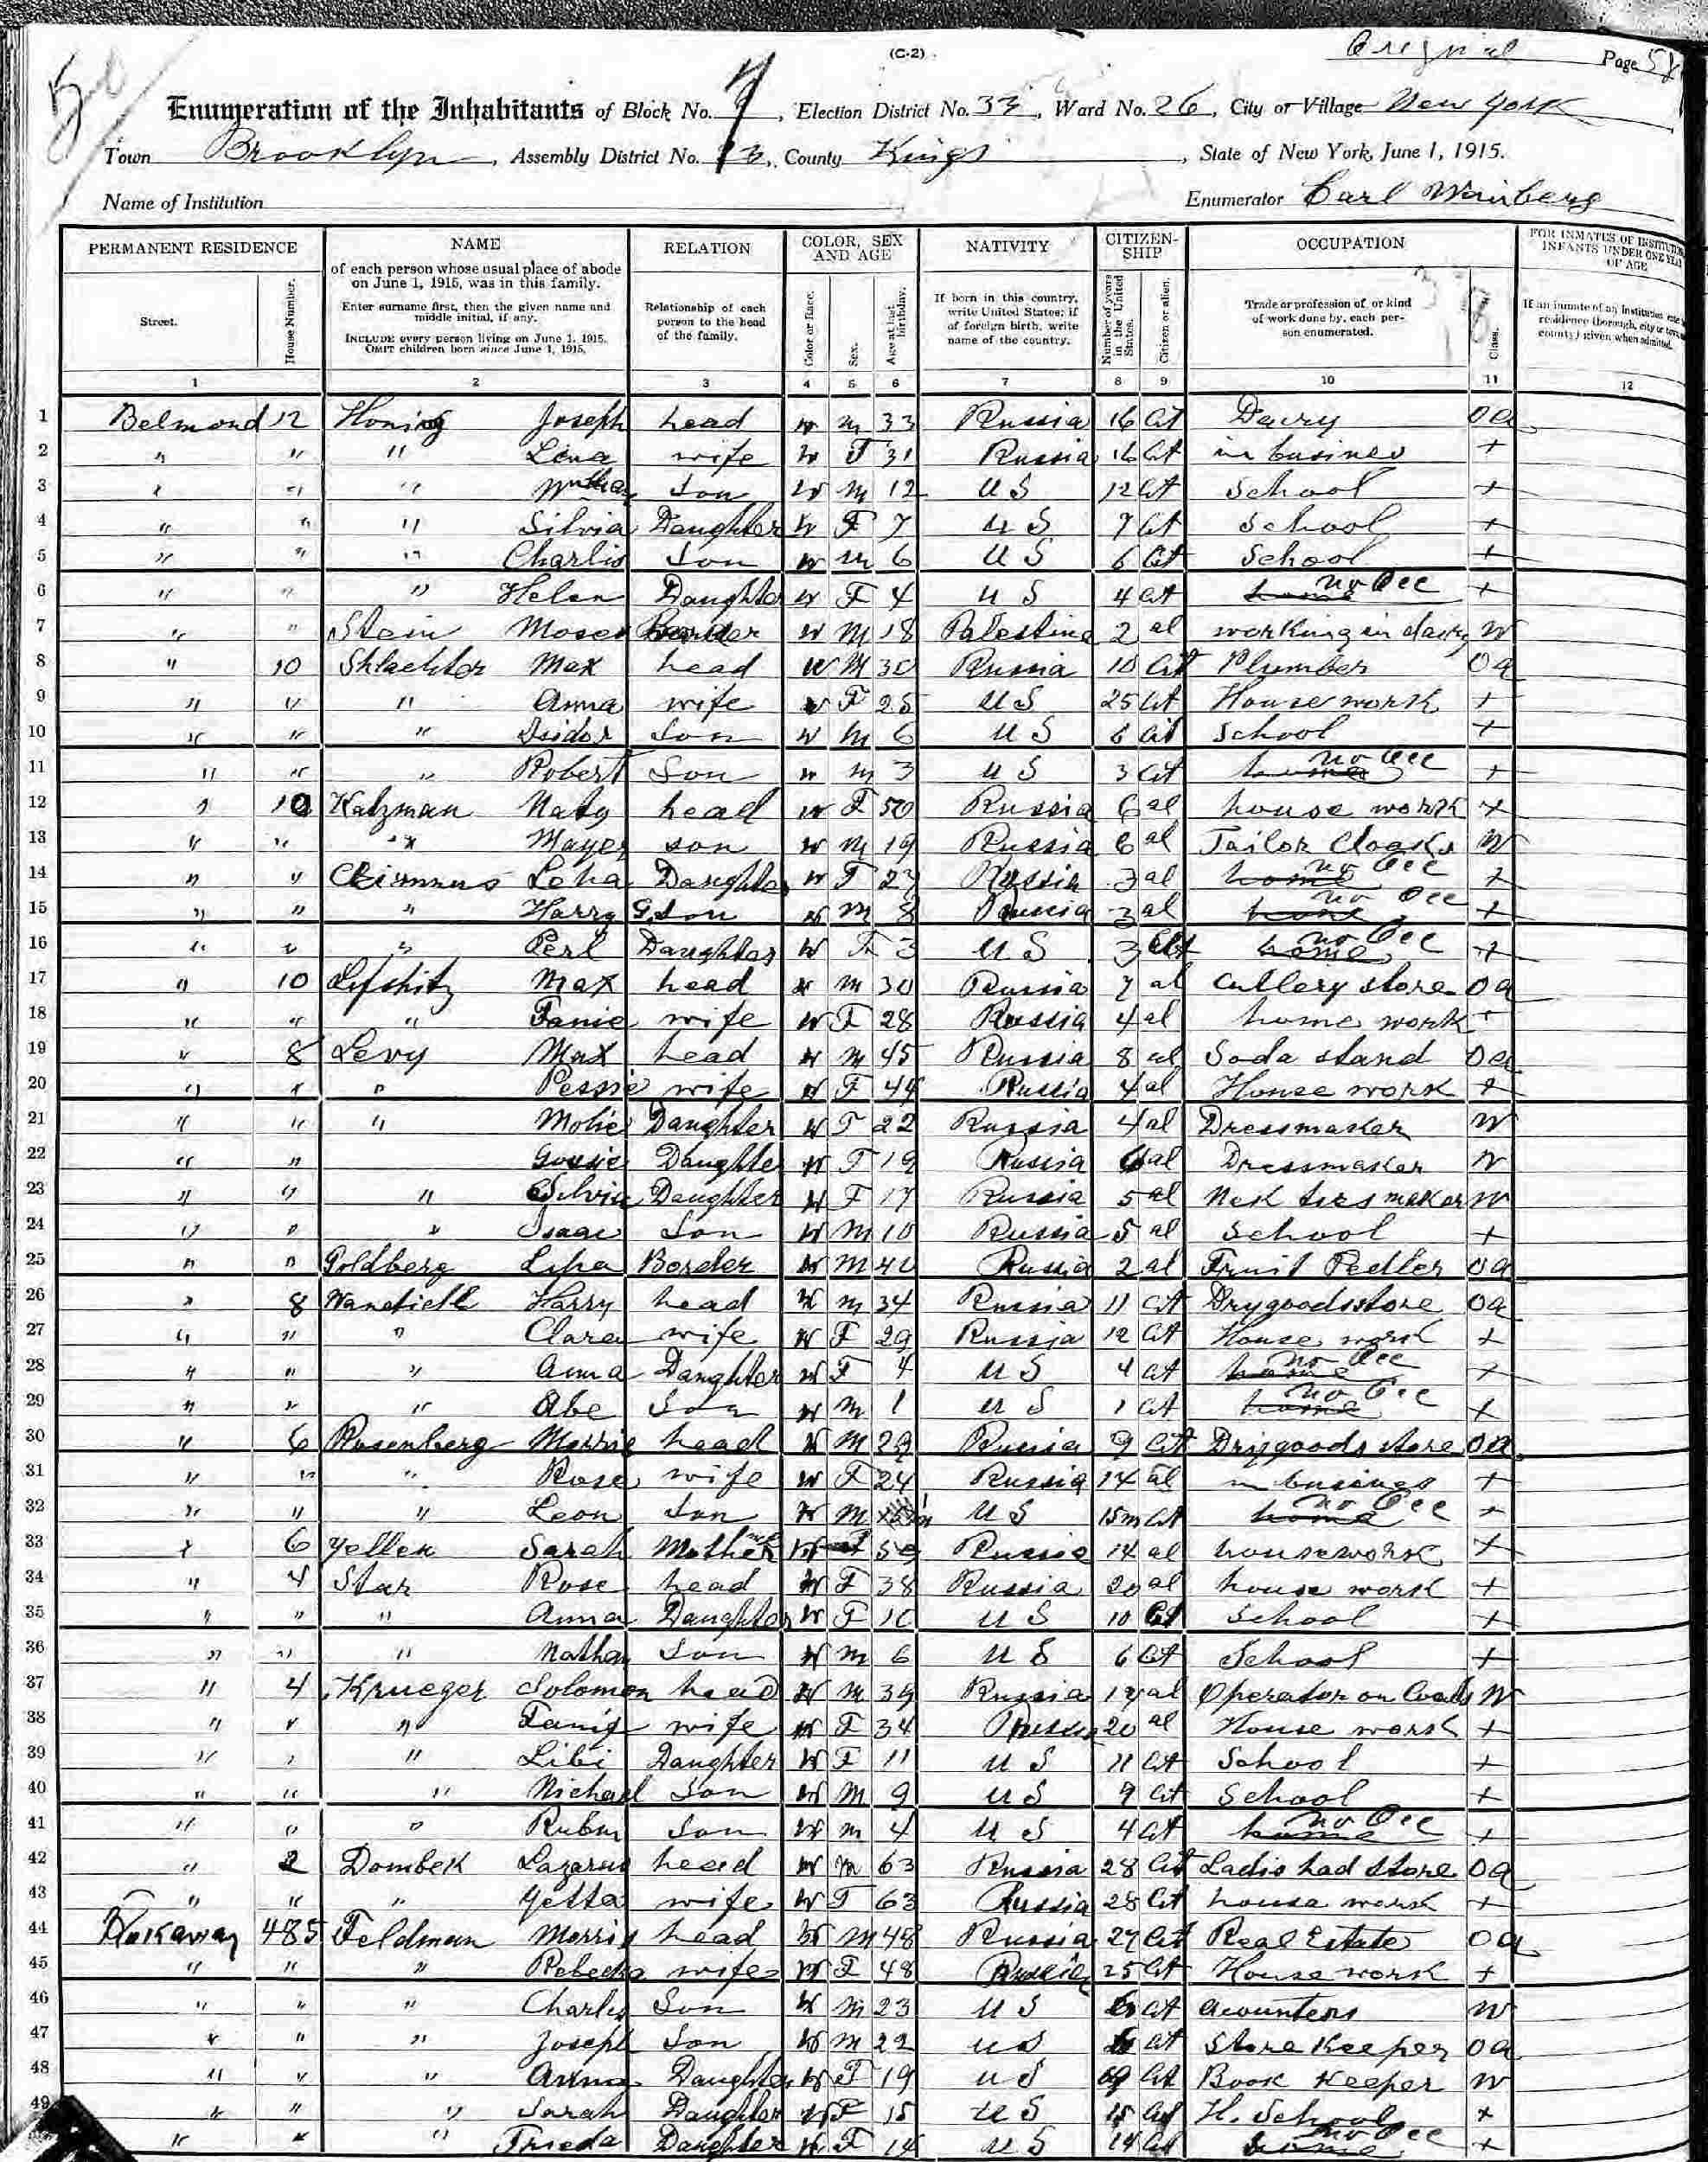 (C-2)
Original Page
Enumeration of the Inhabitants of Block No. , Election District No. 33, Ward No. 26, City or Village New York
Town Brooklyn, Assembly District No. , County Kings, State of New York, June 1, 1915.
Name of Institution Enumerator Carl Wainberg
PERMANENT RESIDENCE NAME RELATION COLOR, SEX AND AGE NATIVITY CITIZEN-SHIP OCCUPATION FOR INMATES OF INSTITUTIONS INFANTS UNDER ONE YEAR OF AGE
Street. House Number. of each person whose usual place of abode on June 1, 1915, was in this family. Enter surname first, then the given name and middle initial, if any. INCLUDE every person living on June 1, 1915. OMIT children born since June 1, 1915. Relationship of each person to the head of the family. Color or Race. Sex. Age at last birthday. If born in this country, write United States; if of foreign birth, write name of the country. Number of years in the United States. Citizen or alien. Trade or profession of, or kind of work done by, each person enumerated. Class. If an inmate of an institution residence (borough, city or town, county) given when admitted.
1 2 3 4 5 6 7 8 9 10 11 12
1 Belmond 12 Honing Joseph head W M 33 Russia 16 Cit Dairy Oa
2 " " " Lena wife W F 31 Russia 16 Cit in busines +
3 " " " son W M 12 U S 12 Cit School +
4 " " " Silvia Daughter W F 7 U S 7 Cit School +
5 " " " Charlis son W M 6 U S 6 Cit School +
6 " " " Helen Daughter W F 4 U S 4 Cit no Occ +
7 " " Stein Moses W M 18 Palestina 2 al working in dairy W
8 " 10 Shlachter Max head W M 30 Russia 10 Cit Plumber Oa
9 " " " Anna wife W F 25 U S 25 Cit House work +
10 " " " Isidor son W M 6 U S 6 Cit School +
11 " " " Robert Son W M 3 U S 3 Cit no Occ +
12 " 10 Katzman head W F 50 Russia 6 al house work +
13 " " " Mayer son W M 19 Russia 6 al Tailor Cloaks W
14 " " Leha Daughter W F 27 Russia 3 al no Occ +
15 " " " Harry G.Son W M 8 Russia 3 al no Occ +
16 " " " Perl Daughter W F 3 U S 3 Cit no Occ +
17 " 10 Lifshitz Max head W M 30 Russia 7 al Cutlery store Oa
18 " " " Fanie wife W F 28 Russia 4 al home work +
19 " 8 Levy Max head W M 45 Russia 8 al Soda stand Oa
20 " " " Pessie wife W F 44 Russia 4 al House work +
21 " " " Molie Daughter W F 22 Russia 4 al Dressmaker W
22 " " Gussie Daughter W F 19 Russia al Dressmaker W
23 " " " Silvia Daughter W F 17 Russia 5 al Nek ties maker W
24 " " " Isaac Son W M 10 Russia 5 al School +
25 " " Goldberg Border W M 40 Russia 2 al Fruit Pedler Oa
26 " 8 Harry head W M 34 Russia 11 Cit Drygoodsstore Oa
27 " " " Clara wife W F 29 Russia 12 Cit House work +
28 " " " Anna Daughter W F 4 U S 4 Cit no Occ +
29 " " " Abe Son W M 1 U S 1 Cit no Occ +
30 " 6 Rosenberg Morris head W M 29 Russia 9 Cit Drygoods store Oa
31 " " " Rose wife W F 24 Russia 14 al in busines +
32 " " " Leon son W M U S 15m Cit no Occ +
33 " 6 Yellen Sarah Mother W F Russia 14 al housework +
34 " 4 Star Rose head W F 38 Russia 20 al house work +
35 " " " Anna Daughter W F 10 U S 10 Cit School +
36 " " " Nathan Son W M 6 U S 6 Cit School +
37 " 4 Krueger Solomon head W M Russia al Operator on Coats W
38 " " " Fanie wife W F 34 Russia 20 al House work +
39 " " " Libi Daughter W F 11 U S 11 Cit School +
40 " " " Michael Son W M 9 U S 9 Cit School +
41 " " " Rubin Son W M 4 U S 4 Cit no Occ +
42 " 2 Dombek Lazarus head W M 63 Russia 28 Cit Ladis had store Oa
43 " " " Yetta wife W F 63 Russia 28 Cit house work +
44 Rokaway 485 Feldman Morris head W M 48 Russia 27 Cit Real Estate Oa
45 " " " Rebecka wife W F 48 Russia 25 Cit House work +
46 " " " Charlis Son W M 23 U S Cit acountens W
47 " " " Joseph Son W M 22 U S Cit Store Keeper Oa
48 " " " Anna Daughter W F 19 U S 19 Cit Book Keeper W
49 " " " Sarah Daughter W F 15 U S 15 Cit H. School +
" " " Frieda Daughter W F 14 U S 14 Cit no Occ +